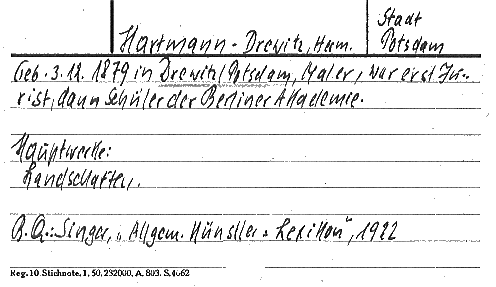 Hartmann-Drewitz, Herm.
Stadt
Potsdam
Geb. 3.12.1879 in Drewitz/Potsdam, Maler, war erst Ju-
rist, dann Schüler der Berliner Akademie.
Hauptwerke:
Landschaften.
B.Q.: Singer, „Allgem. Künstler-Lexikon", 1922
Reg. 10. Stichnote, 1, 50, 232000, A. 803. S. 4662